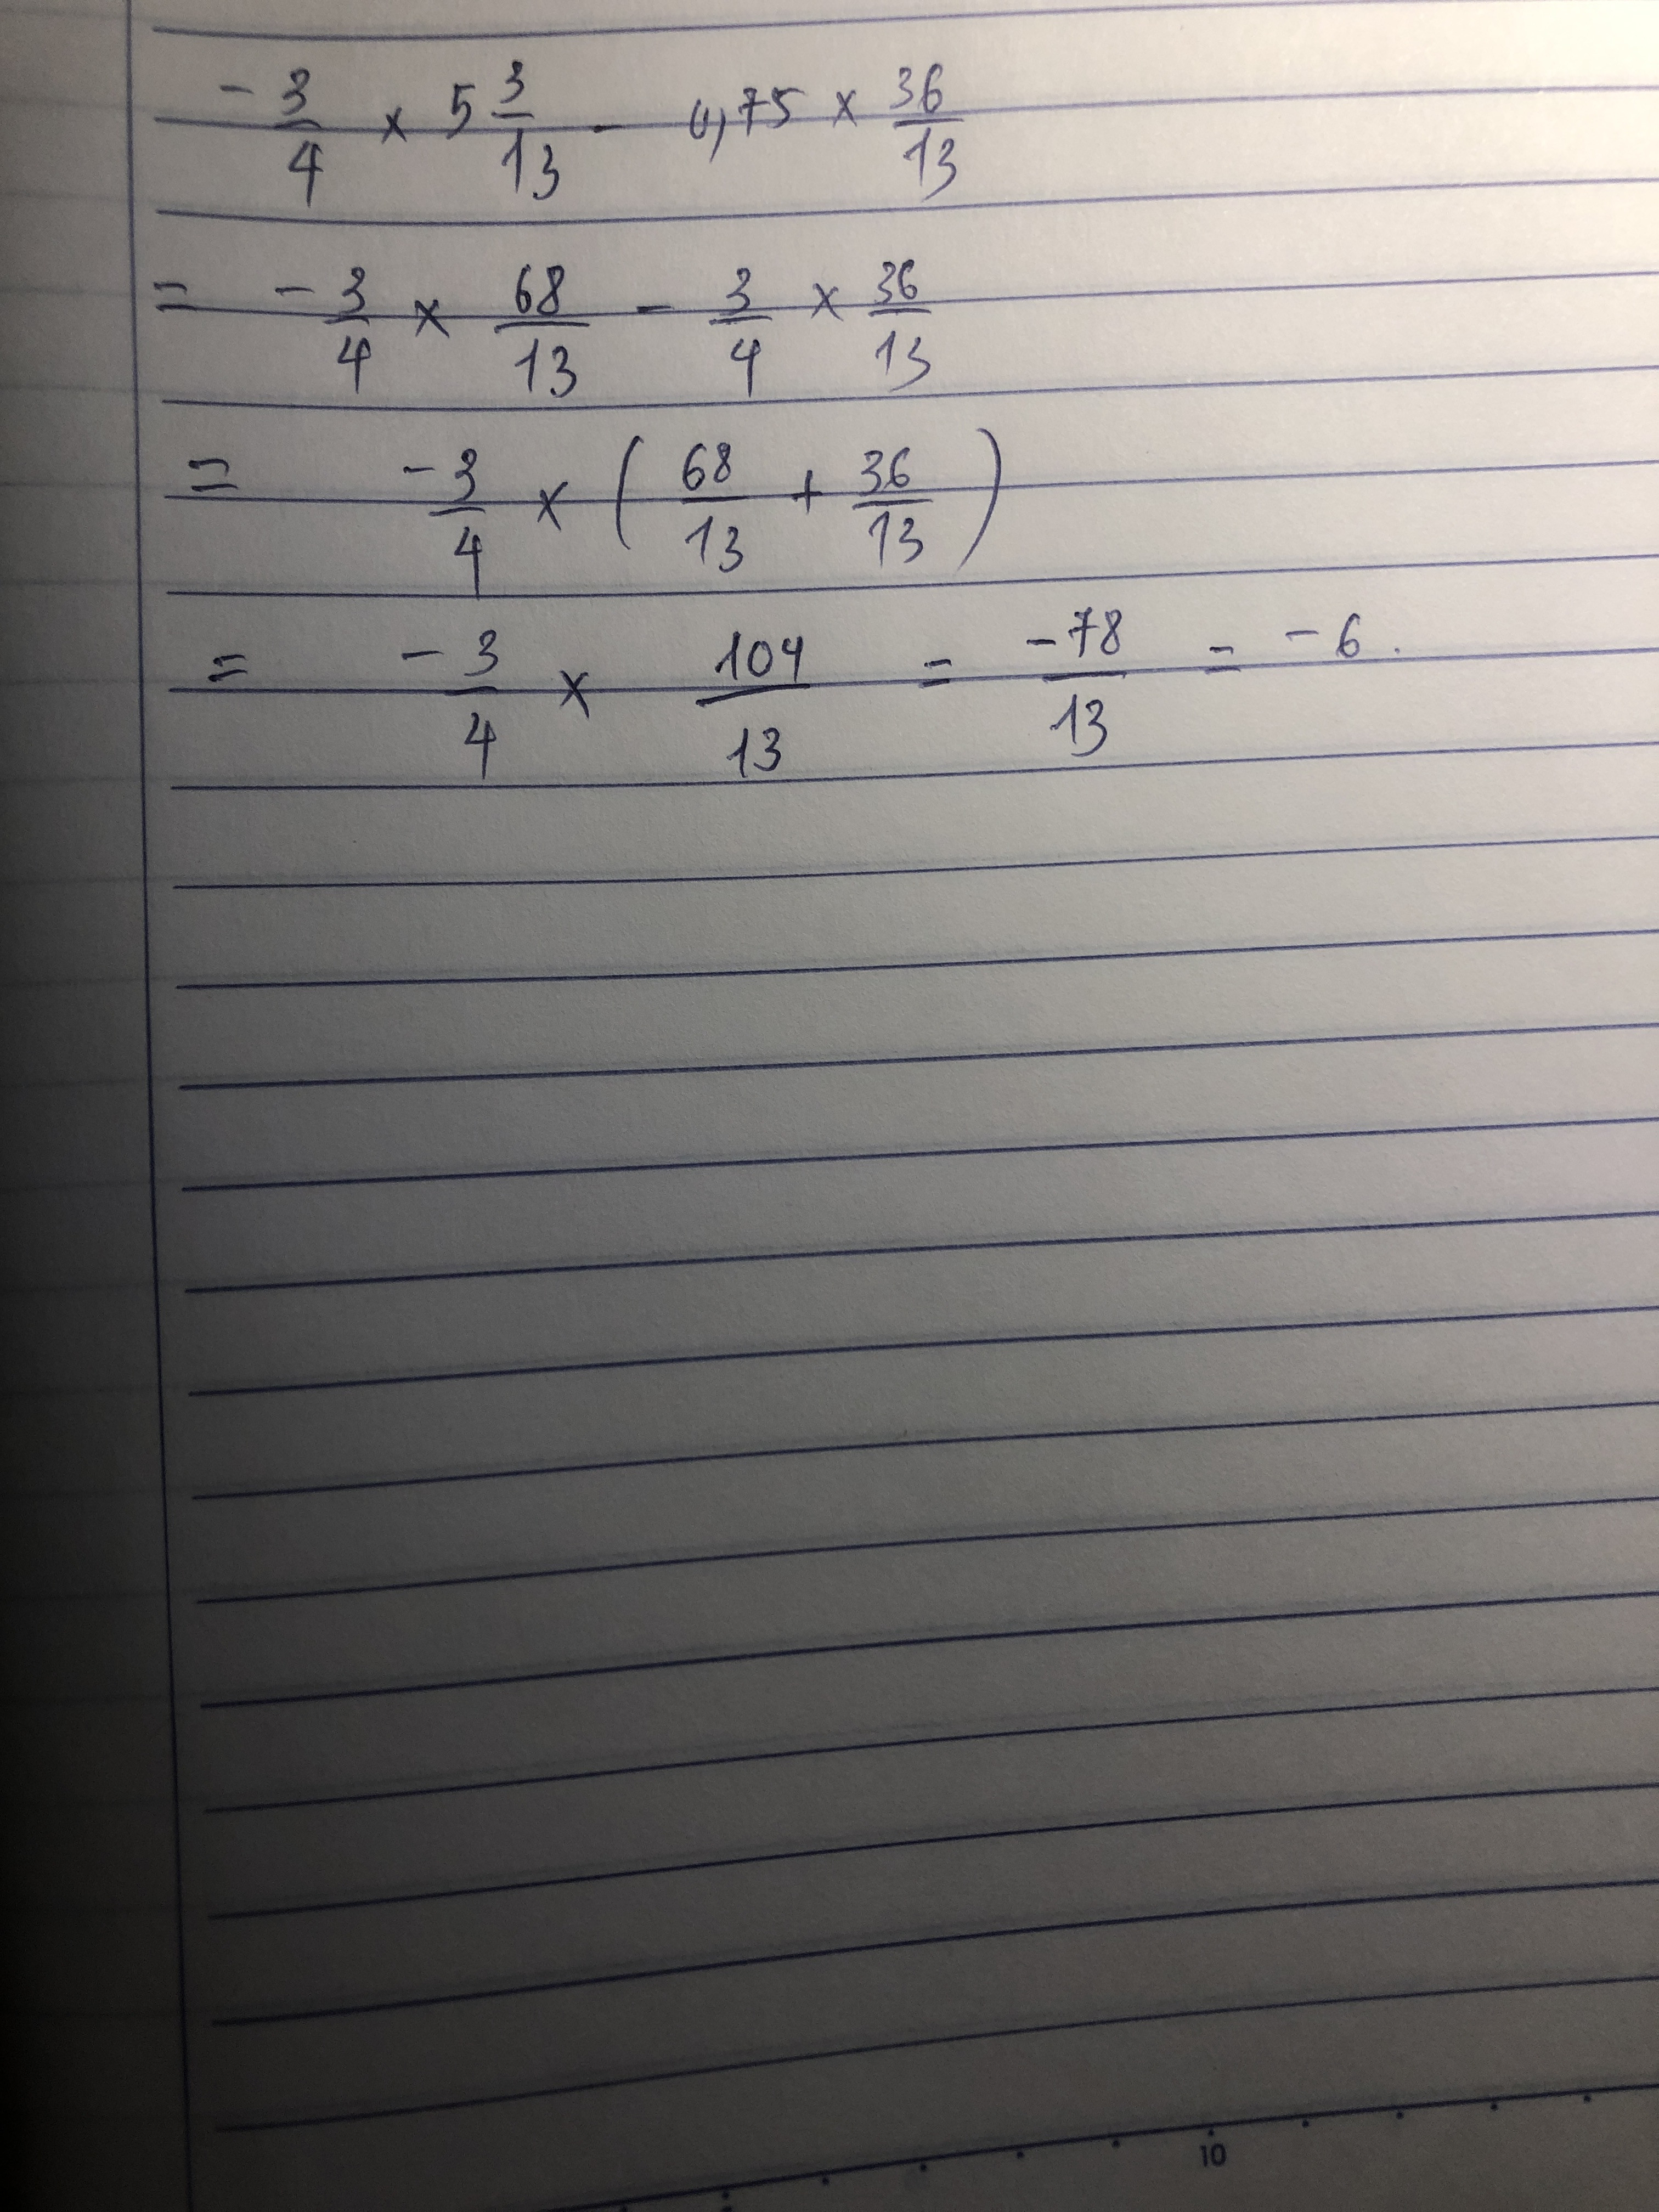 -3/4 × 5 3/13 - 0,75 × 36/13
= -3/4 × 68/13 - 3/4 × 36/13
= -3/4 × ( 68/13 + 36/13 )
= -3/4 × 104/13 = -78/13 = -6.
10